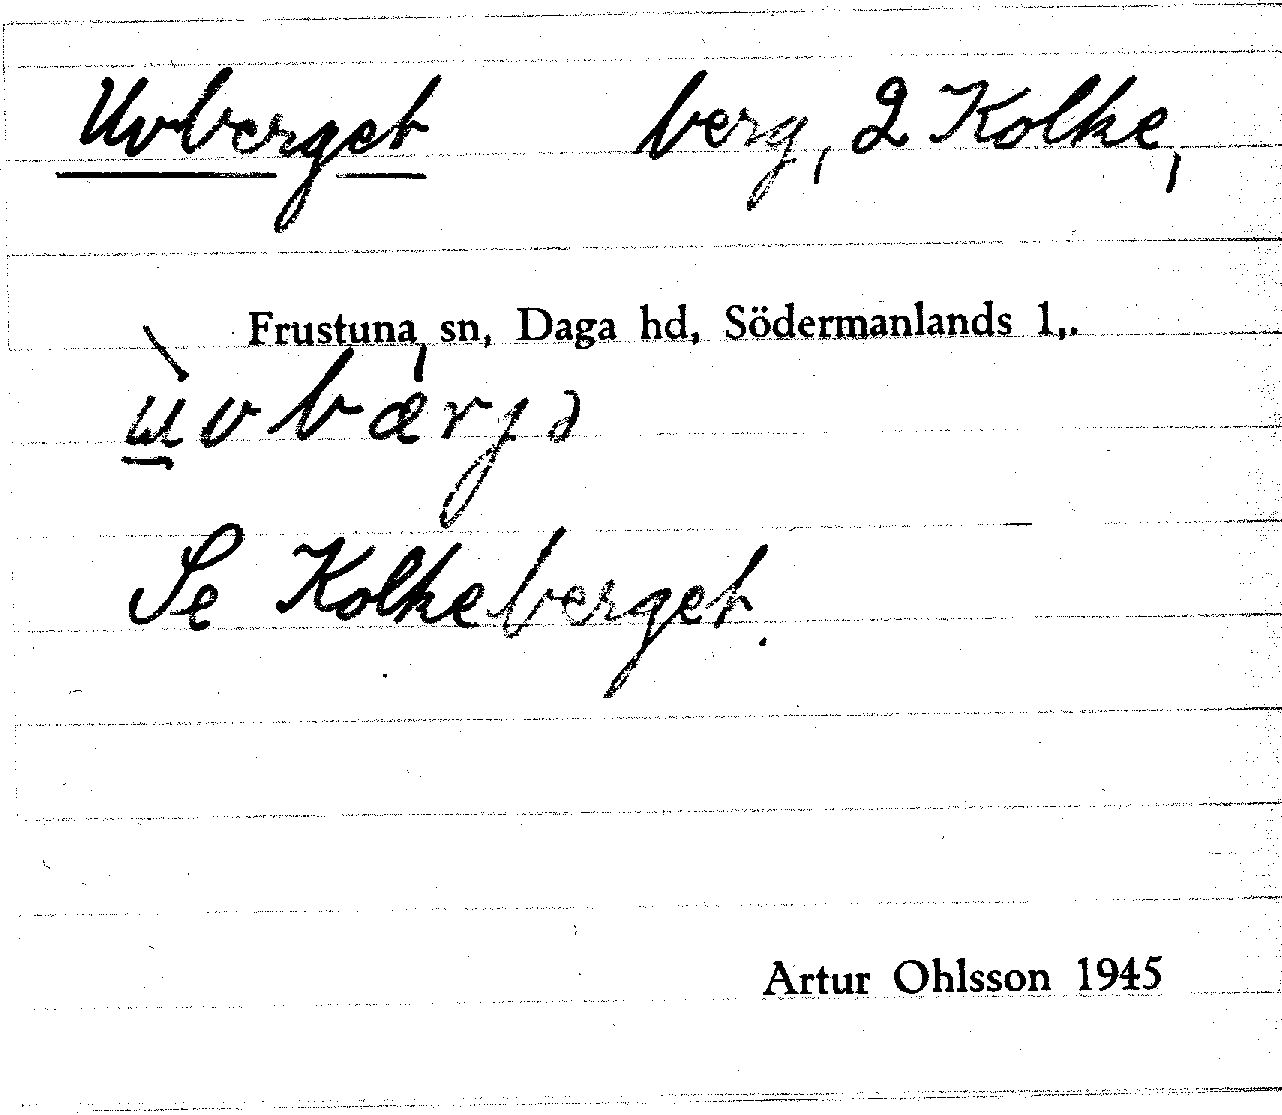 Uvberget berg, 2 Kolke,
Frustuna sn, Daga hd, Södermanlands l.
ɯ̱̀vbǽrjə
Se Kolkeberget.
Artur Ohlsson 1945